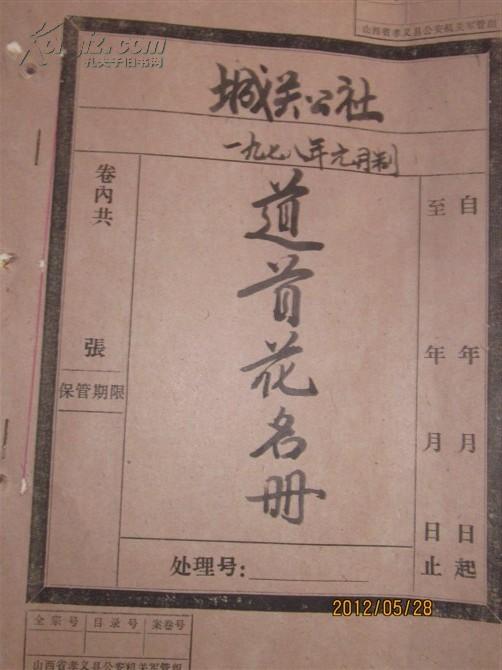 山西省孝义县公安机关军管组
Kongfz.com
孔夫子旧书网
城关公社
一九七八年元月制
自 年 月 日起
至 年 月 日止
道首花名册
卷內共 張
保管期限
处理号：
2012/05/28
全宗号 目录号 案卷号
山西省孝义县公安机关军管组